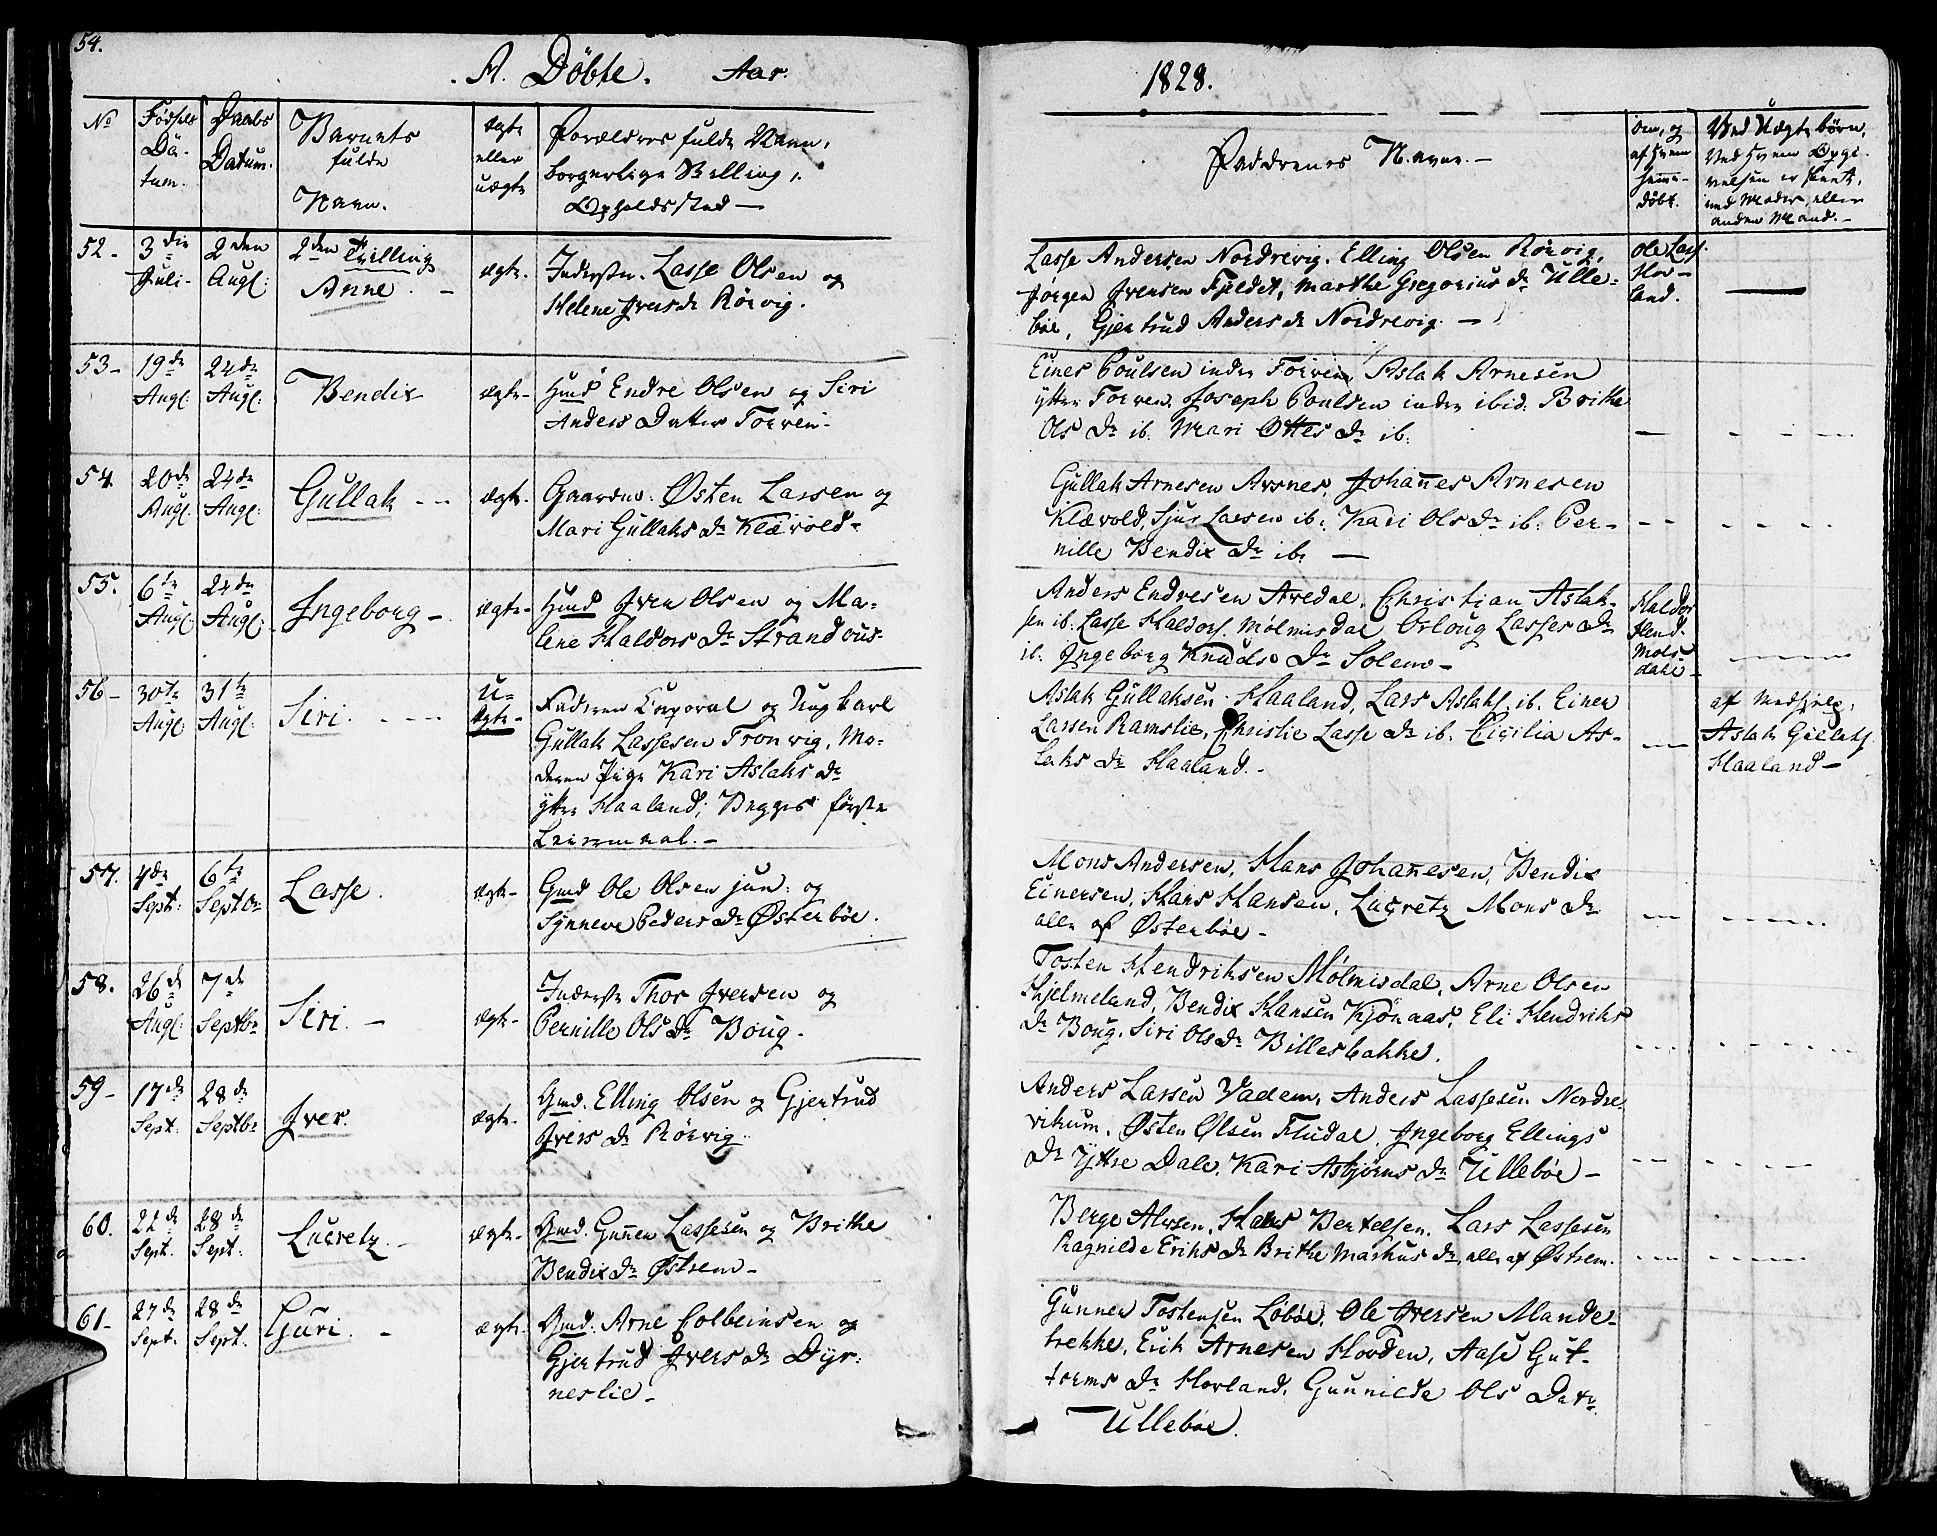 54.
A. Döbte. Aar.
1828.
No
Fødsels Datum.
Daabs Datum.
Barnets fulde Navn.
ægte eller uægte
Forældres fulde Navn,
borgerlige Stilling,
Opholdssted —
Faddrenes Navne. —
om, og af hvem hjemmedöbt.
Ved Uægte børn,
ved hvem Opgivelsen er skeet,
ved Moder, eller
anden Mand. —
52 -
3die Juli -
2den Augs:
2den Tvilling
Anne. -
ægte.
Inderste. Lasse Olsen og
Helene Ivers Dr Rörvig.
Lasse Andersen Nordrevig. Elling Olsen Rörvig,
Jørgen Iversen Fjeldet, Marthe Gregorius Dr Ulle-
böe, Gjertrud Anders Dr Nordrevig. —
Ole Lass.
Hov-
land.
53 -
19de Augs:
24de Augs:
Bendix
ægte -
Hmd Endre Olsen og Siri
Anders Datter Torven -
Einer Poulsen indre Torven, Aslak Arnesen
ytter Torven. Joseph Poulsen indre ibid. Brithe
Ols Dr ib. Mari Ottes Dr ib.
54.
20de Augs:
24de Augs:
Gullak - -
ægte -
Gaardmd: Østen Larsen og
Mari Gullaks Dr Klævold -
Gullak Arnesen Arsnes, Johannes Arnesen
Klævold, Sjur Larsen ib: Kari Ols Dr ib: Per-
nille Bendix Dr ib. —
55.
6te Augs:
24de Augs:
Ingeborg -
ægte -
Hmd Iver Olsen og Ma-
lene Haldors Dr Strandous -
Anders Endresen Avedal, Christian Aslak-
sen ib: Lasse Haldors. Mölmisdal, Orloug Lasses Dr
ib: Ingeborg Knuds Dr Solem -
Haldor
Hend.
Mols
dale -
56 -
30te Augs:
31te Augs:
Siri. - - -
U-
ægte -
Faderen Corporal og Ungkarl
Gullak Lassesen Tronvig, Mo-
deren Pige Kari Aslaks Dr
ytter Haaland; Begges förste
Leiermaal. -
Aslak Gullaksen Haaland, Lars Aslaks. ib. Einer
Larsen Ramslie, Christie Lasse Dr ib. Cicilia As-
laks Dr Haaland. -
af Medhjelp,
Aslak Gullaks.
Haaland -
57.
4de Sept:
6te Septbr
Lasse.
ægte -
Gmd Ole Olsen jun: og
Synneve Peders Dr Østerböe.
Mons Andersen, Hans Johannesen, Bendix
Einersen, Hans Hansen, Lucretz Mons Dr
alle af Østerböe -
58.
26de Augs:
7de Septbr
Siri. -
ægte -
Inderste Thor Iversen og
Pernille Ols Dr Boug.
Tosten Hendriksen Mölmisdal, Arne Olsen
Hjelmeland, Bendix Hansen Kjönaas, Eli Hendriks
Dr Boug. Siri Ols Dr Billesbakke.
59 -
17de Sept:
28de Septbr
Iver.
ægte -
Gmd. Elling Olsen og Gjertrud
Ivers Dr Rörvig.
Anders Larsen Vadem, Anders Lassesen Nordre-
vikum. Østen Olsen Fludal, Ingeborg Ellings
Dr Yttre Dale, Kari Asbjørns Dr Ulleböe -
60.
22de Sept.
28de Sept:
Lucretz -
ægte -
Gmd. Gunner Lassesen og Brithe
Bendix Dr Østrem -
Berge Alvsen, Hans Bertelsen, Lars Lassesen
Ragnilde Eriks Dr Brithe Markus Dr, alle af Østrem.
61 -
27de Sept.
28de Sept.
Guri. -
ægte -
Gmd. Arne Colbeinsen og
Gjertrud Ivers Dr Dyr-
neslie -
Gunner Tostensen Löböe, Ole Iversen Mande-
trekke, Erik Arnesen Hovden, Aase Gut-
torms Dr Hovland, Gunnilde Ols Datr
Ulleböe.